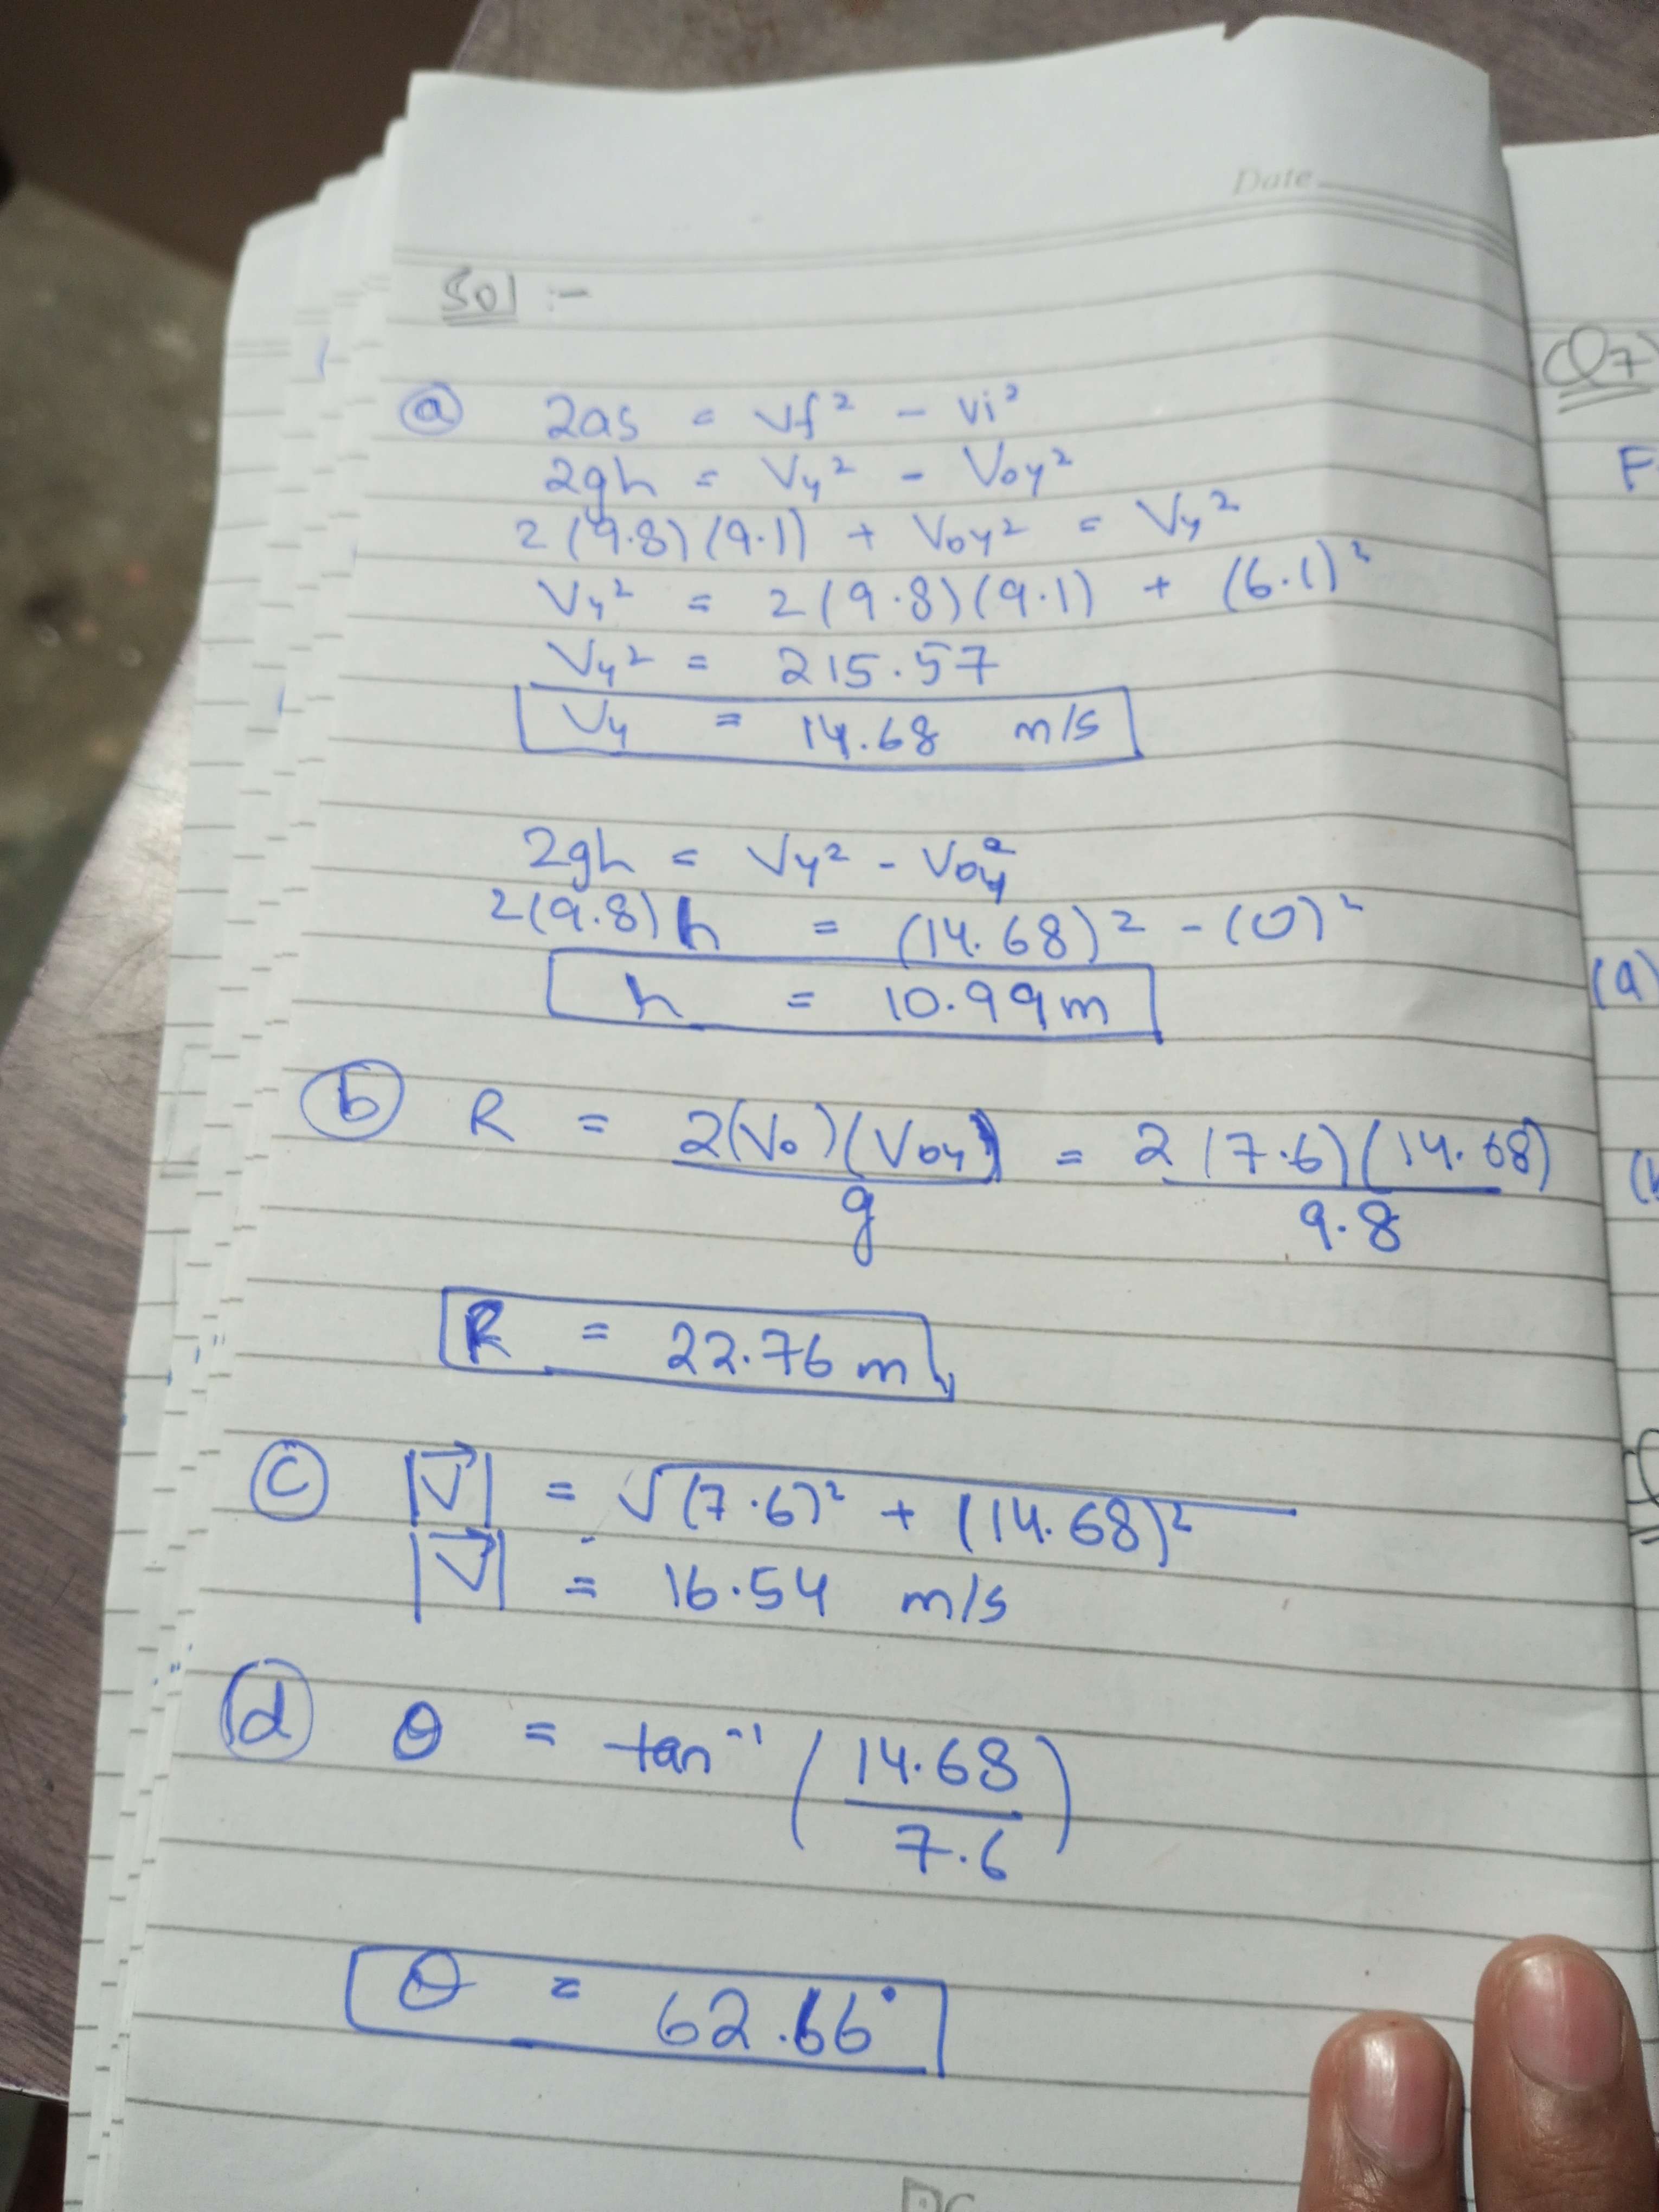 Date
Sol :-
(Q7)
ⓐ 2as = Vf² - Vi²
2gh = Vy² - Voy²
2(9.8)(9.1) + Voy² = Vy²
Vy² = 2(9.8)(9.1) + (6.1)²
Vy² = 215.57
Vy = 14.68 m/s
2gh = Vy² - Voy²
2(9.8)h = (14.68)² - (0)²
h = 10.99m
(a)
ⓑ R = 2(Vo)(Voy)/g = 2(7.6)(14.68)/9.8
R = 22.76 m
ⓒ |V⃗| = √(7.6)² + (14.68)²
|V⃗| = 16.54 m/s
ⓓ θ = tan⁻¹ (14.68/7.6)
θ = 62.66°